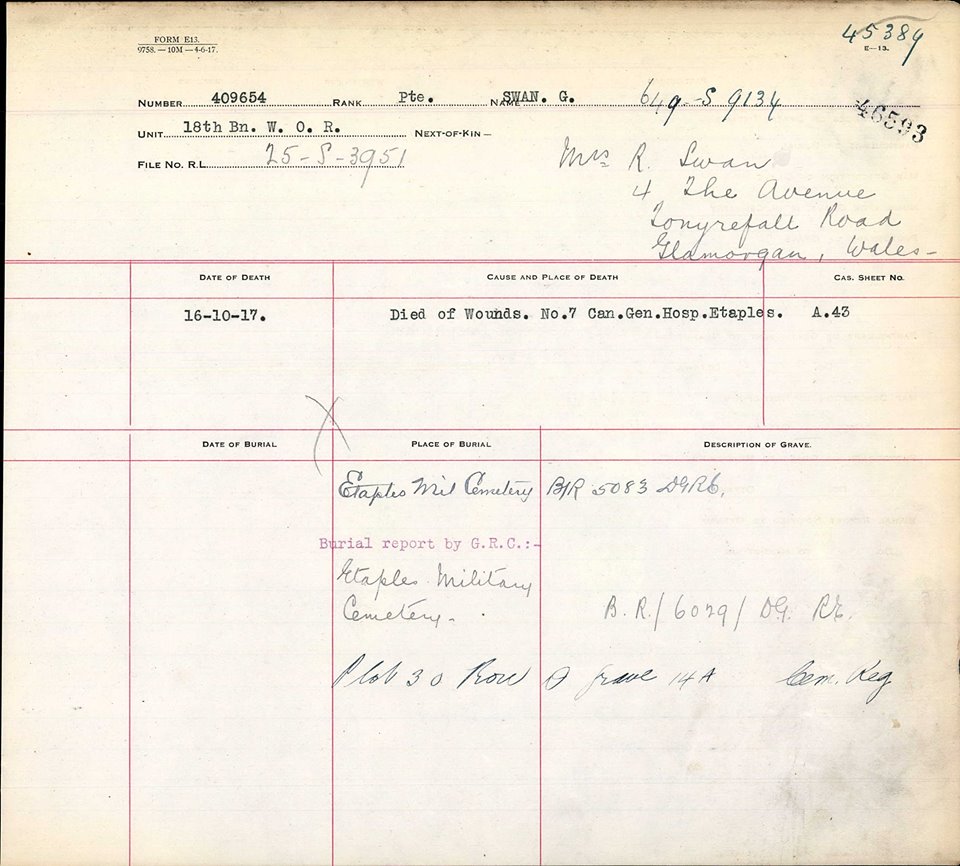 FORM E13.
9758. — 10M — 4-6-17.
45389
E—13.
NUMBER 409654 RANK Pte. NAME SWAN. G. 649-S 9134
46593
UNIT 18th Bn. W. O. R. NEXT-OF-KIN —
FILE NO. R.L. 25-S-3951
Mrs R. Swan
4 The Avenue
Tonyrefall Road
Glamorgan, Wales-
DATE OF DEATH CAUSE AND PLACE OF DEATH CAS. SHEET NO.
16-10-17. Died of Wounds. No.7 Can.Gen.Hosp.Etaples. A.43
DATE OF BURIAL PLACE OF BURIAL DESCRIPTION OF GRAVE.
Etaples Mil Cemetery B/R 5083
Burial report by G.R.C.:-
Etaples Military
Cemetery- B.R./6029/ DG. RE.
Plot 30 Row Grave 14A Cem. Reg